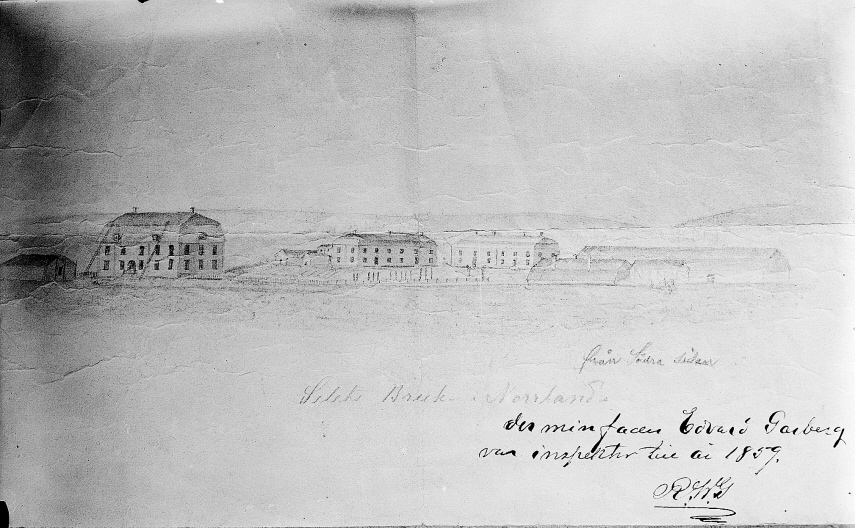 från Södra sidan
Selets Bruk i Norrland.
der min fader Edvard Garberg
var inspektor till år 1859.
R.W.G